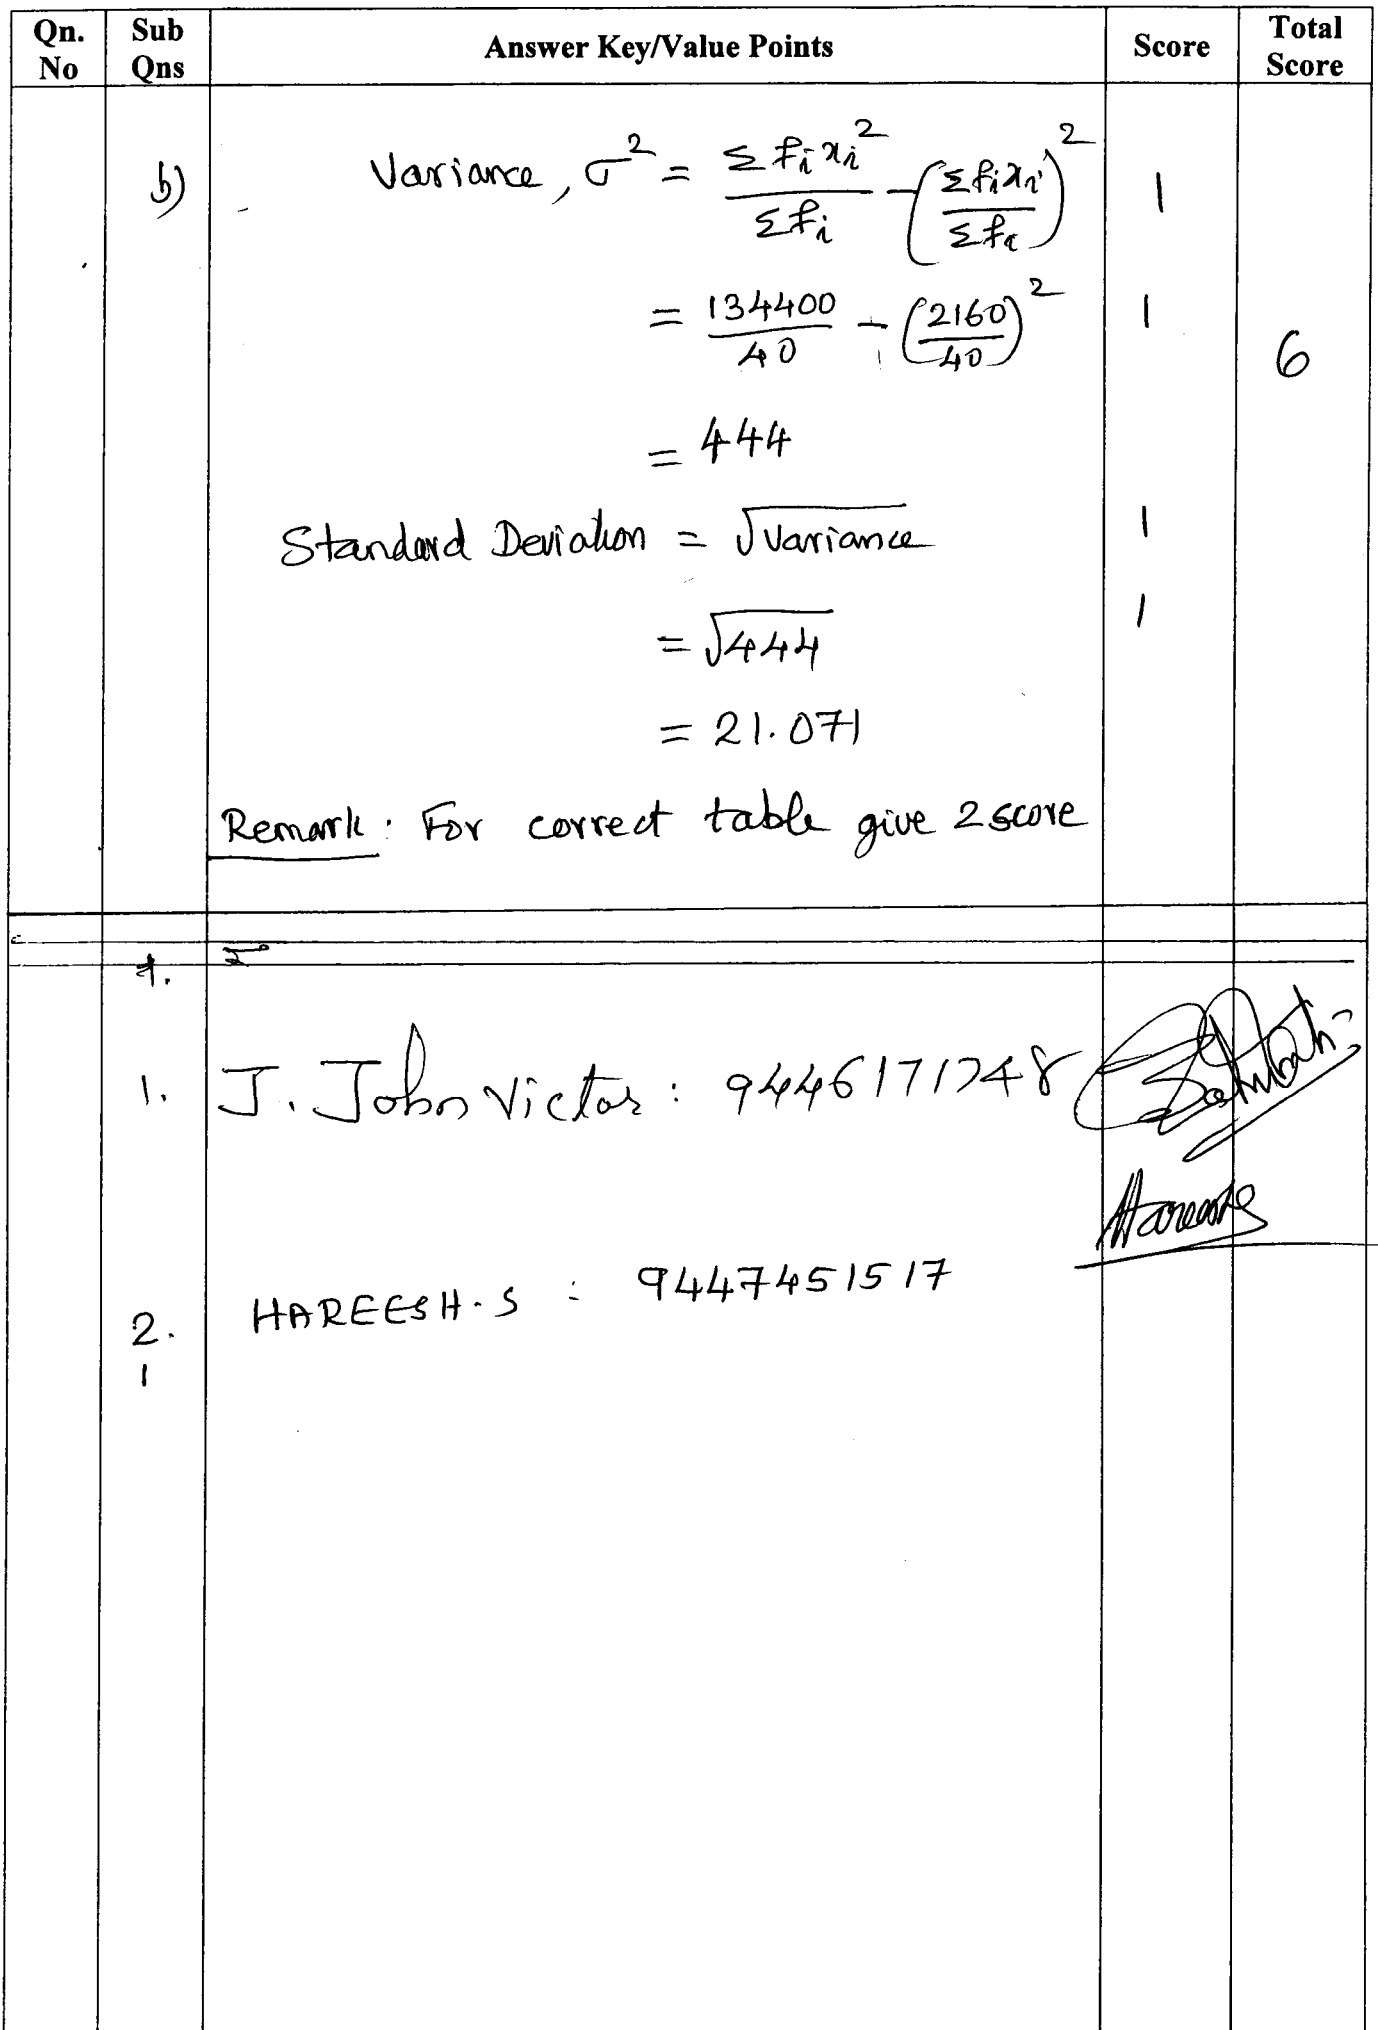 Qn. No Sub Qns Answer Key/Value Points Score Total Score
b) Variance, σ² = Σfᵢxᵢ² / Σfᵢ − (Σfᵢxᵢ / Σfᵢ)² 1
= 134400/40 − (2160/40)² 1
6
= 444
Standard Deviation = √Variance 1
= √444 1
= 21.071
Remark: For correct table give 2 score
1. J. John Victor: 9446171748
2. HAREESH.S : 9447451517
1